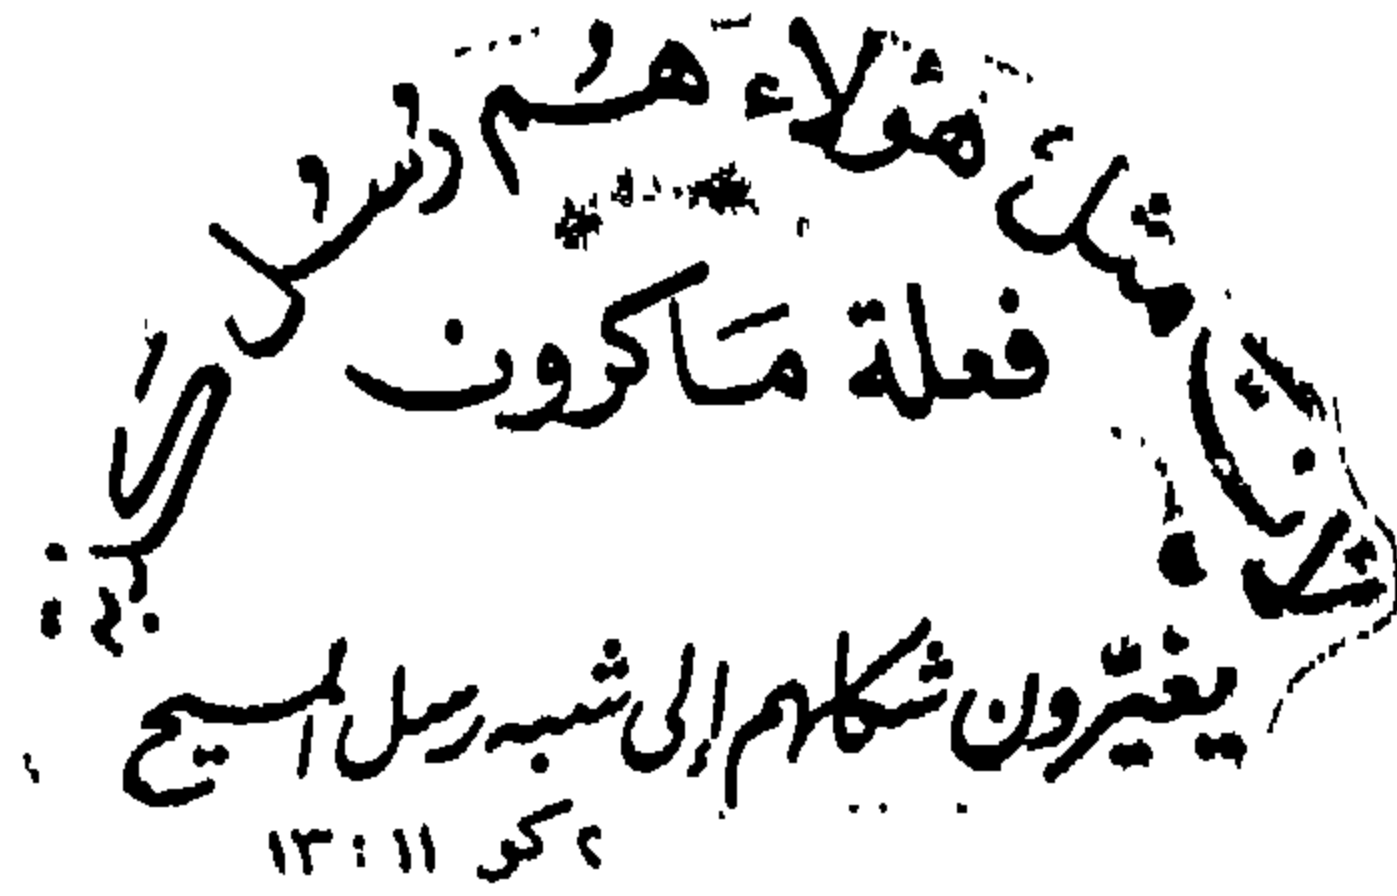 مثل هؤلاء هُم رُسُل كَذبة
فعلة مَاكرون
يغيّرون شكلهم إلى شبه رسل المسيح
٢ كو ١١ : ١٣